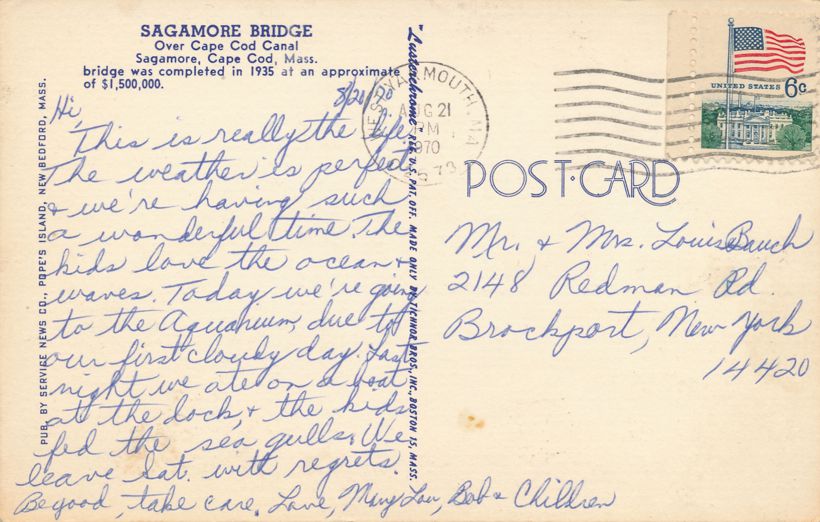 SAGAMORE BRIDGE
Over Cape Cod Canal
Sagamore, Cape Cod, Mass.
bridge was completed in 1935 at an approximate
of $1,500,000.
8/20/70
Hi,
This is really the life.
The weather is perfect
& we're having such
a wonderful time. The
kids love the ocean &
waves. Today we're going
to the Aquarium, due to
our first cloudy day. Last
night we ate on a boat
at the dock, & the kids
fed the sea gulls. We
leave Sat. with regrets.
Be good, take care. Love, Mary Lou, Bob & Children
PUB. BY SERVICE NEWS CO., POPE'S ISLAND, NEW BEDFORD, MASS.
"Lusterchrome" REG. U.S. PAT. OFF. MADE ONLY BY TICHNOR BROS., INC., BOSTON 15, MASS.
WEST YARMOUTH, MA
AUG 21
PM
1970
02673
UNITED STATES 6c
POST-CARD
Mr. & Mrs. Louis Bauch
2148 Redman Rd
Brockport, New York
14420